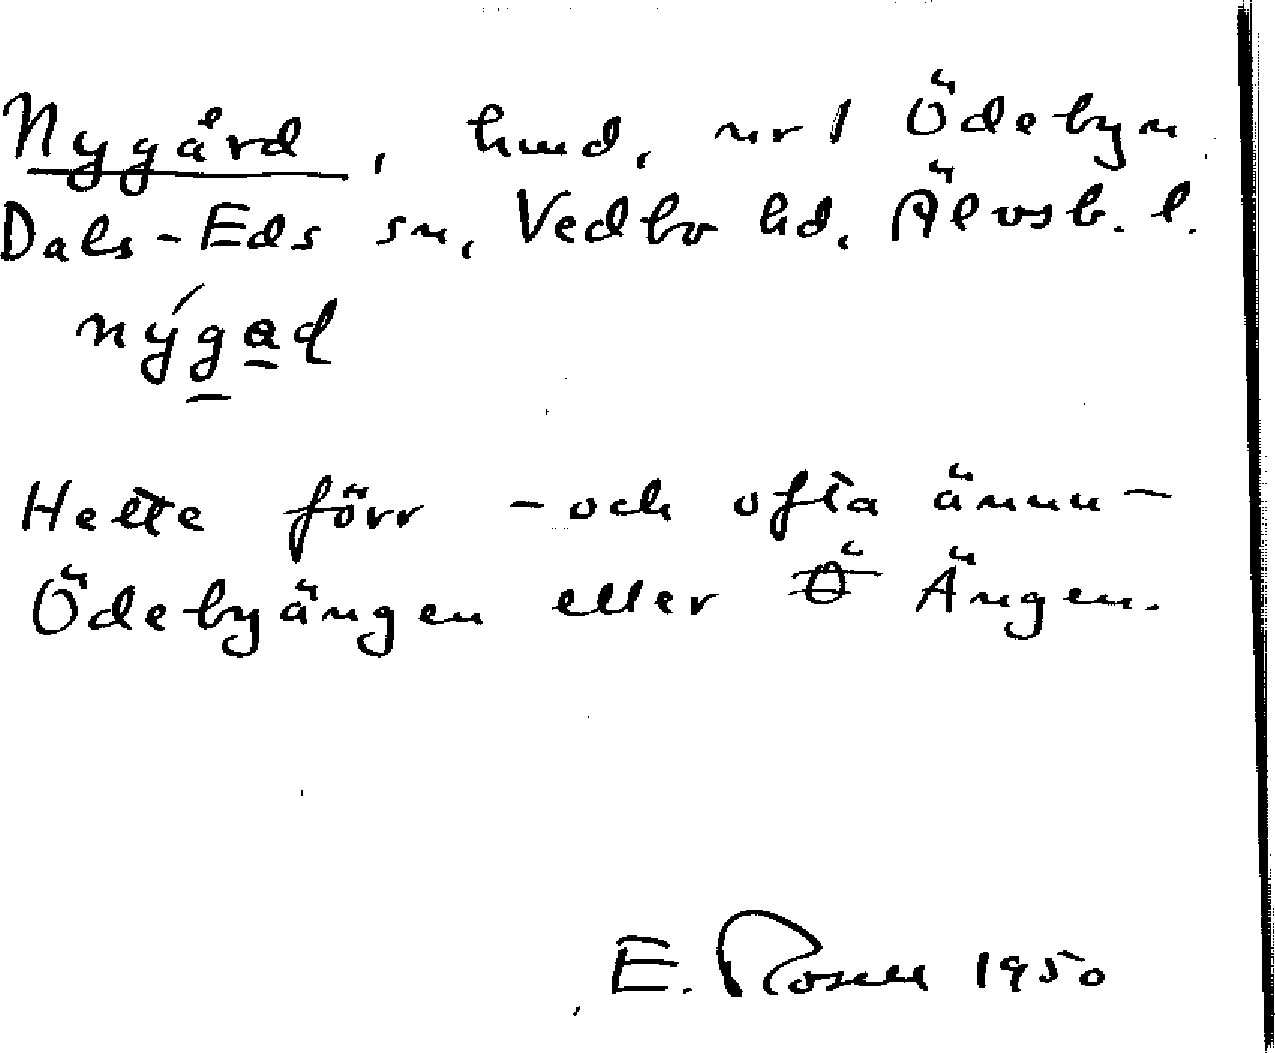 Nygård, hmd, nr 1 Ödebyn
Dals-Eds sn, Vedbo hd, Älvsb. l.
nýgad
Hette förr - och ofta ännu -
Ödebyängen eller Ö Ängen.
E. Rosell 1950